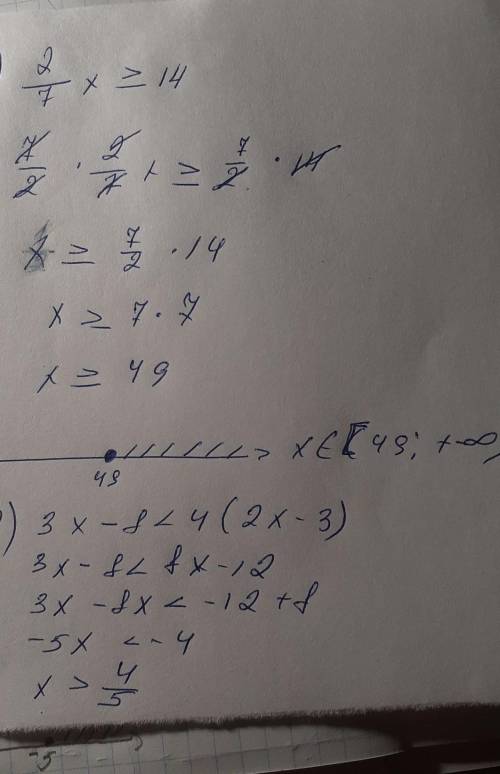 ) 2/7 x ≥ 14
7/2 · 2/7 x ≥ 7/2 · 14
x ≥ 7/2 · 14
x ≥ 7 · 7
x ≥ 49
49 x ∈ [49; +∞)
) 3x - 8 < 4(2x - 3)
3x - 8 < 8x - 12
3x - 8x < -12 + 8
-5x < -4
x > 4/5
-5